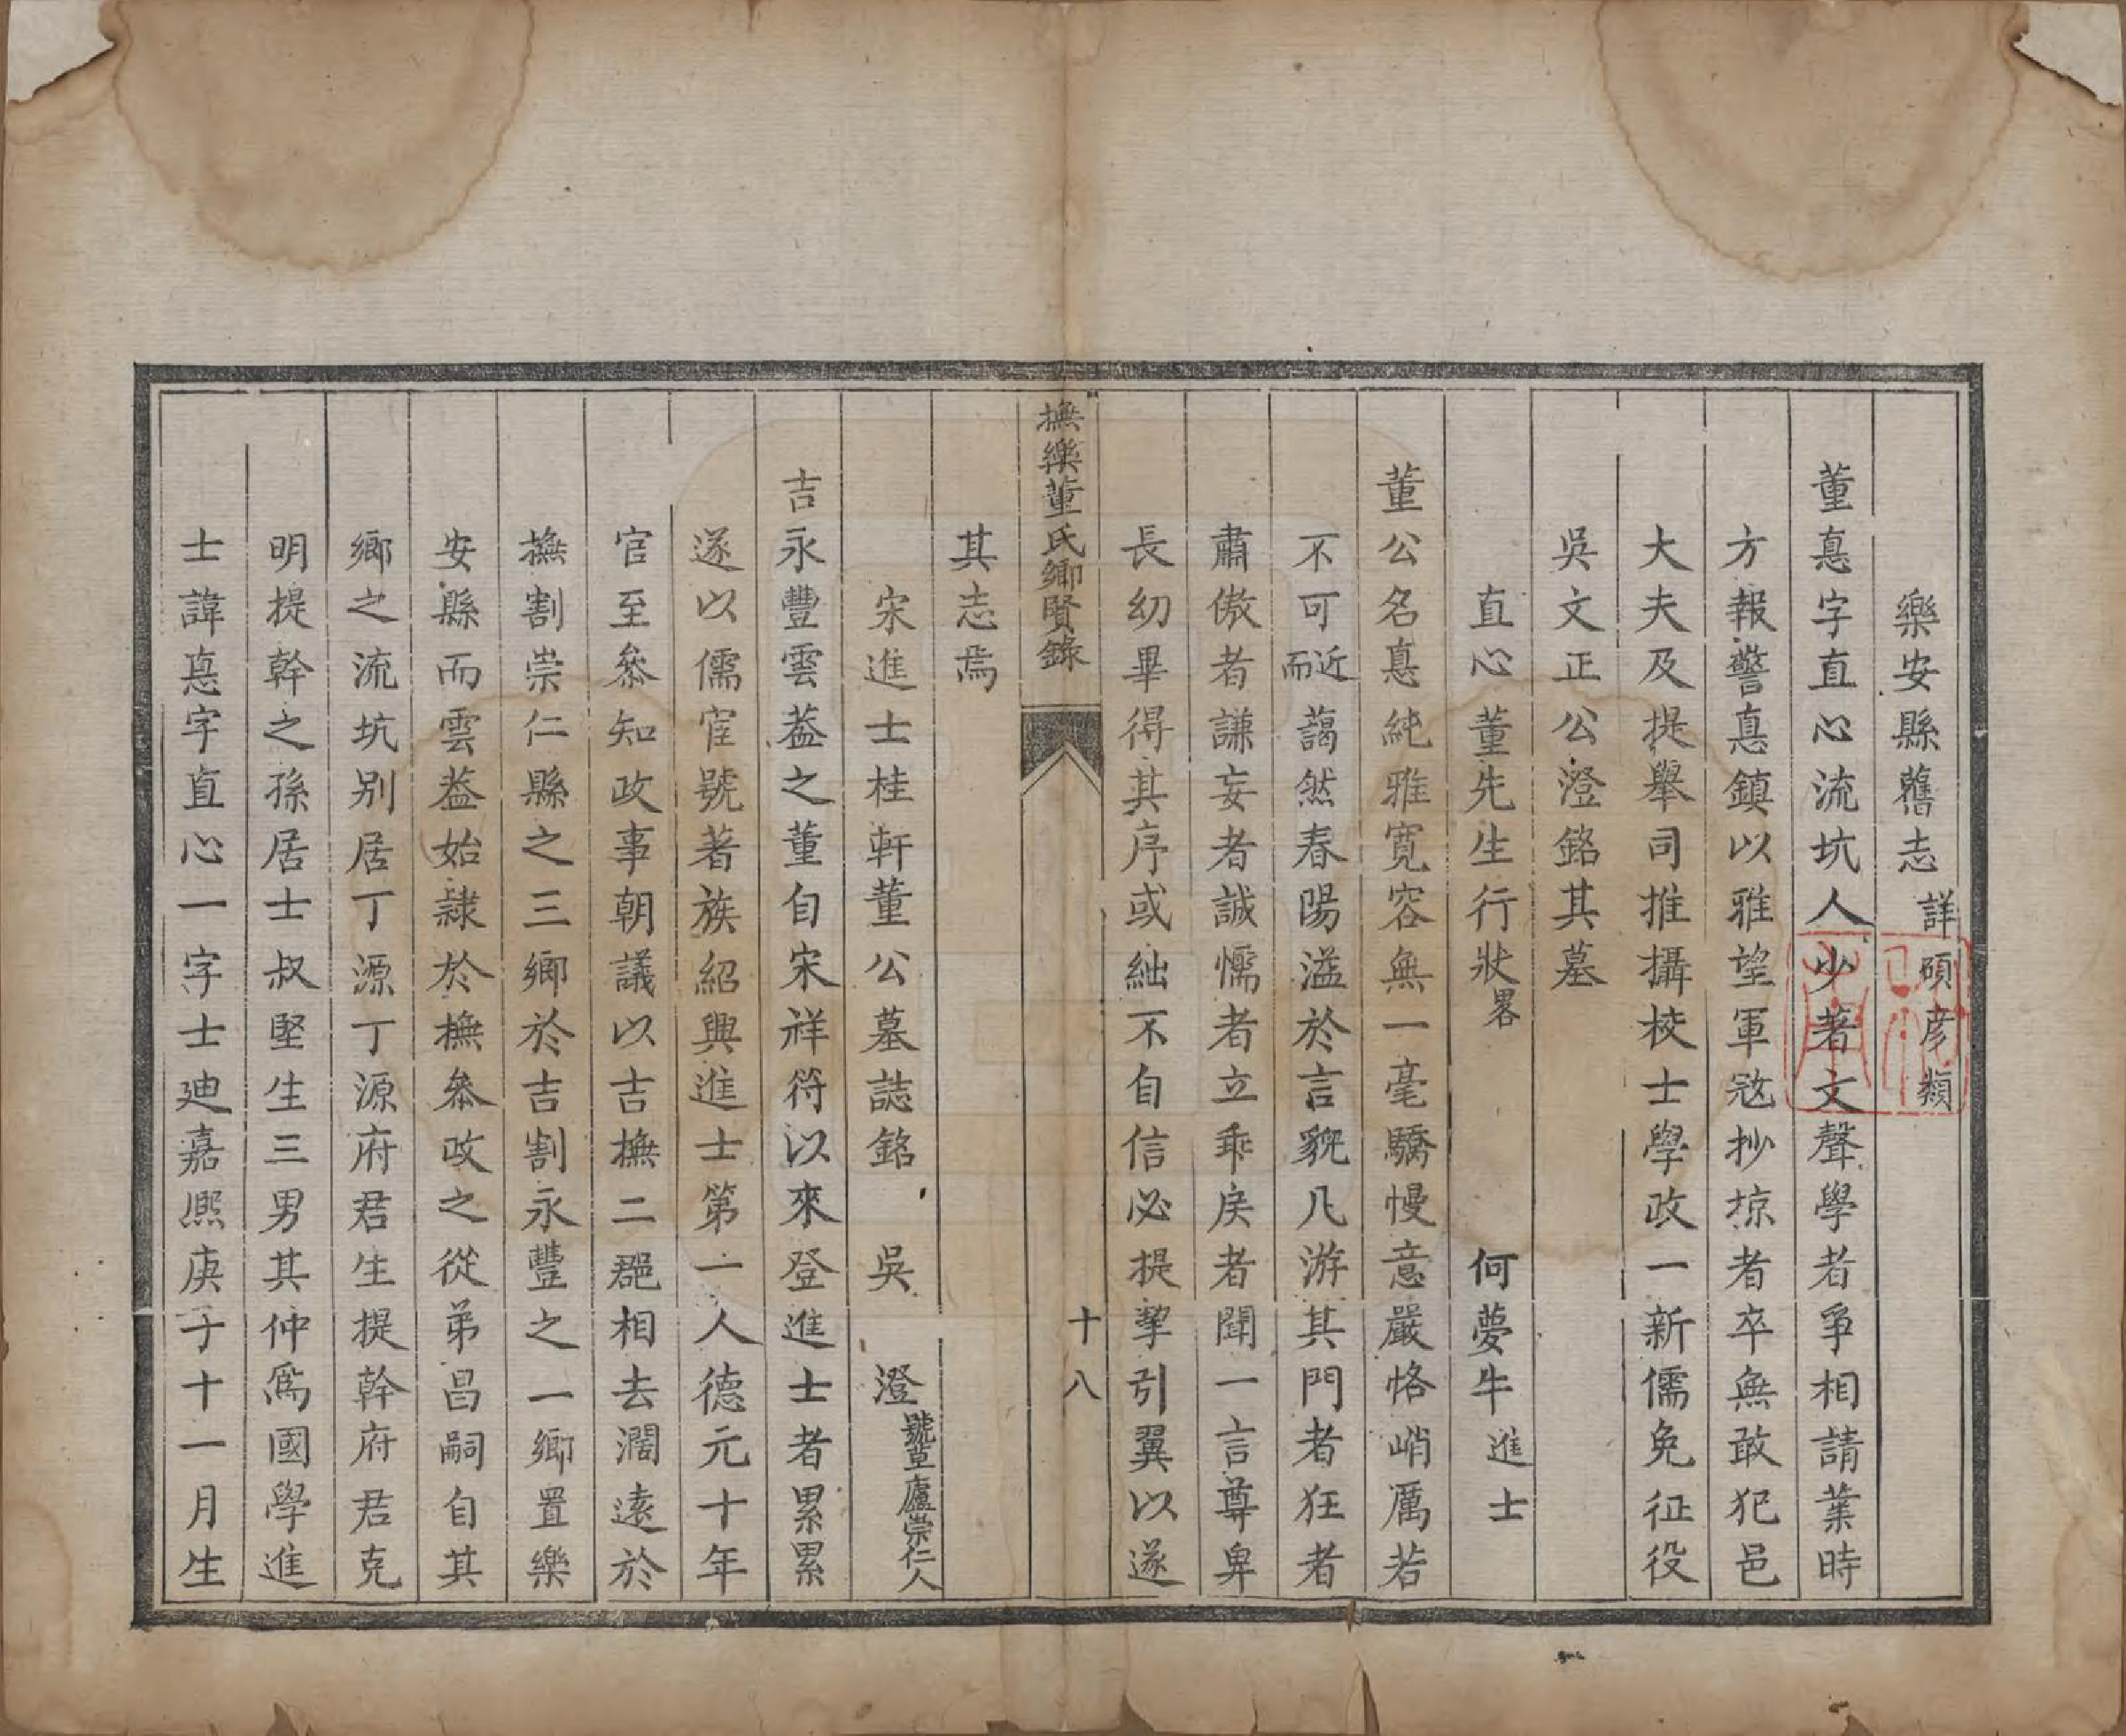 樂安縣舊志詳碩彦類
董悳字直心流坑人少著文聲學者爭相請業時
方報警悳鎮以雅望軍㓂抄掠者卒無敢犯邑
大夫及提舉司推攝校士學政一新儒免征役
吳文正公澄銘其墓
直心董先生行狀畧 何夢牛進士
董公名悳純雅寬容無一毫驕慢意嚴恪峭厲若
不可近而藹然春陽溢於言貌凡游其門者狂者
肅傲者謙妄者誠懦者立乖戾者聞一言尊卑
長幼畢得其序或絀不自信必提挈引翼以遂
撫樂董氏鄉賢錄 十八
其志焉
宋進士桂軒董公墓誌銘 吳 澄號草廬崇仁人
吉永豐雲葢之董自宋祥符以來登進士者累累
遂以儒宦號著族紹興進士第一人德元十年
官至叅知政事朝議以吉撫二郡相去濶遠於
撫割崇仁縣之三鄉於吉割永豐之一鄉置樂
安縣而雲葢始隸於撫叅政之從弟昌嗣自其
鄉之流坑别居丁源丁源府君生提幹府君克
明提幹之孫居士叔堅生三男其仲爲國學進
士諱悳字直心一字士廸嘉熙庚子十一月生